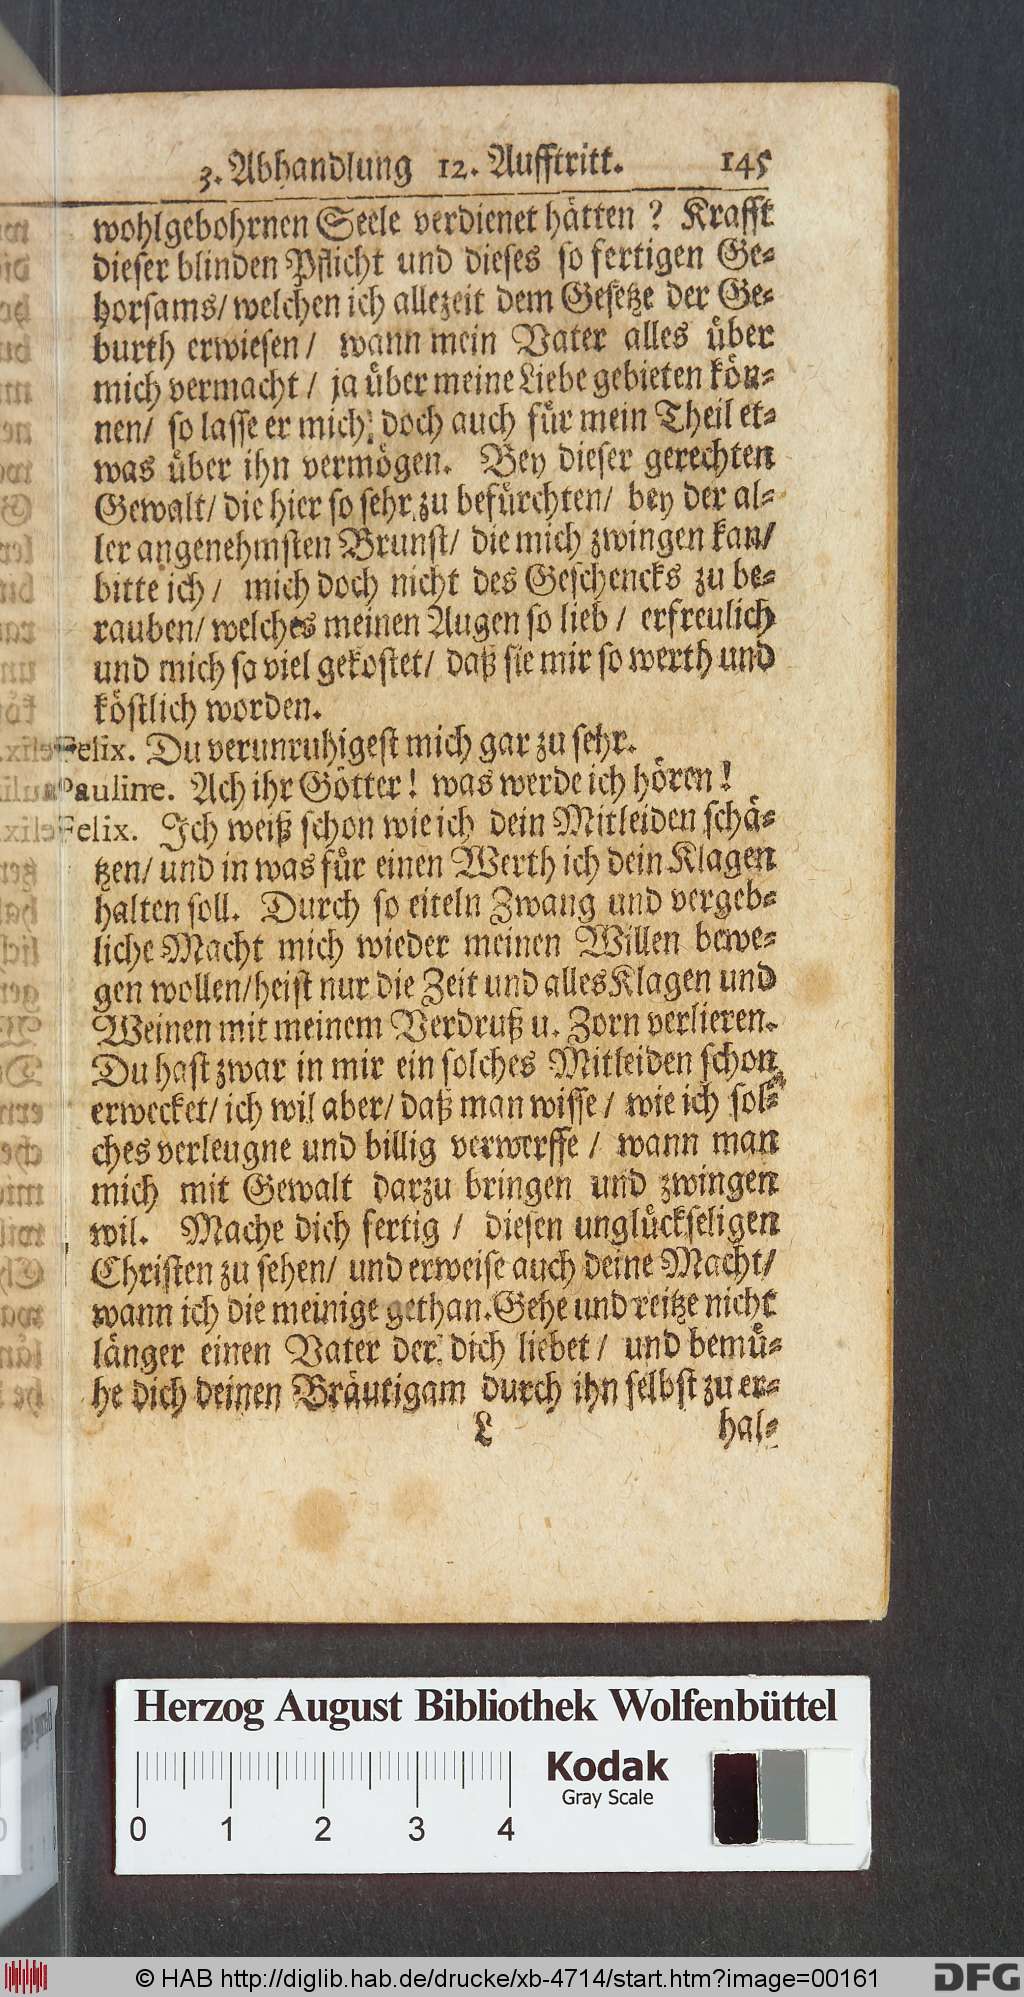 3. Abhandlung 12. Aufftritt. 145
wohlgebohrnen Seele verdienet hätten ? Krafft
dieser blinden Pflicht und dieses so fertigen Ge-
horsams/ welchen ich allezeit dem Gesetze der Ge-
burth erwiesen / wann mein Vater alles über
mich vermacht / ja über meine Liebe gebieten kön-
nen/ so lasse er mich doch auch für mein Theil et-
was über ihn vermögen. Bey dieser gerechten
Gewalt/ die hier so sehr zu befürchten/ bey der al-
ler angenehmsten Brunst/ die mich zwingen kan/
bitte ich / mich doch nicht des Geschencks zu be-
rauben/ welches meinen Augen so lieb / erfreulich
und mich so viel gekostet/ daß sie mir so werth und
köstlich worden.
Felix. Du verunruhigest mich gar zu sehr.
Pauline. Ach ihr Götter ! was werde ich hören !
Felix. Ich weiß schon wie ich dein Mitleiden schä-
tzen/ und in was für einen Werth ich dein Klagen
halten soll. Durch so eiteln Zwang und vergeb-
liche Macht mich wieder meinen Willen bewe-
gen wollen/heist nur die Zeit und alles Klagen und
Weinen mit meinem Verdruß u. Zorn verlieren.
Du hast zwar in mir ein solches Mitleiden schon
erwecket/ ich wil aber/ daß man wisse / wie ich sol-
ches verleugne und billig verwerffe / wann man
mich mit Gewalt darzu bringen und zwingen
wil. Mache dich fertig / diesen unglückseligen
Christen zu sehen/ und erweise auch deine Macht/
wann ich die meinige gethan. Gehe und reitze nicht
länger einen Vater der dich liebet / und bemü-
he dich deinen Bräutigam durch ihn selbst zu er-
L hal-
Herzog August Bibliothek Wolfenbüttel
Kodak
Gray Scale
0 1 2 3 4
© HAB http://diglib.hab.de/drucke/xb-4714/start.htm?image=00161
DFG